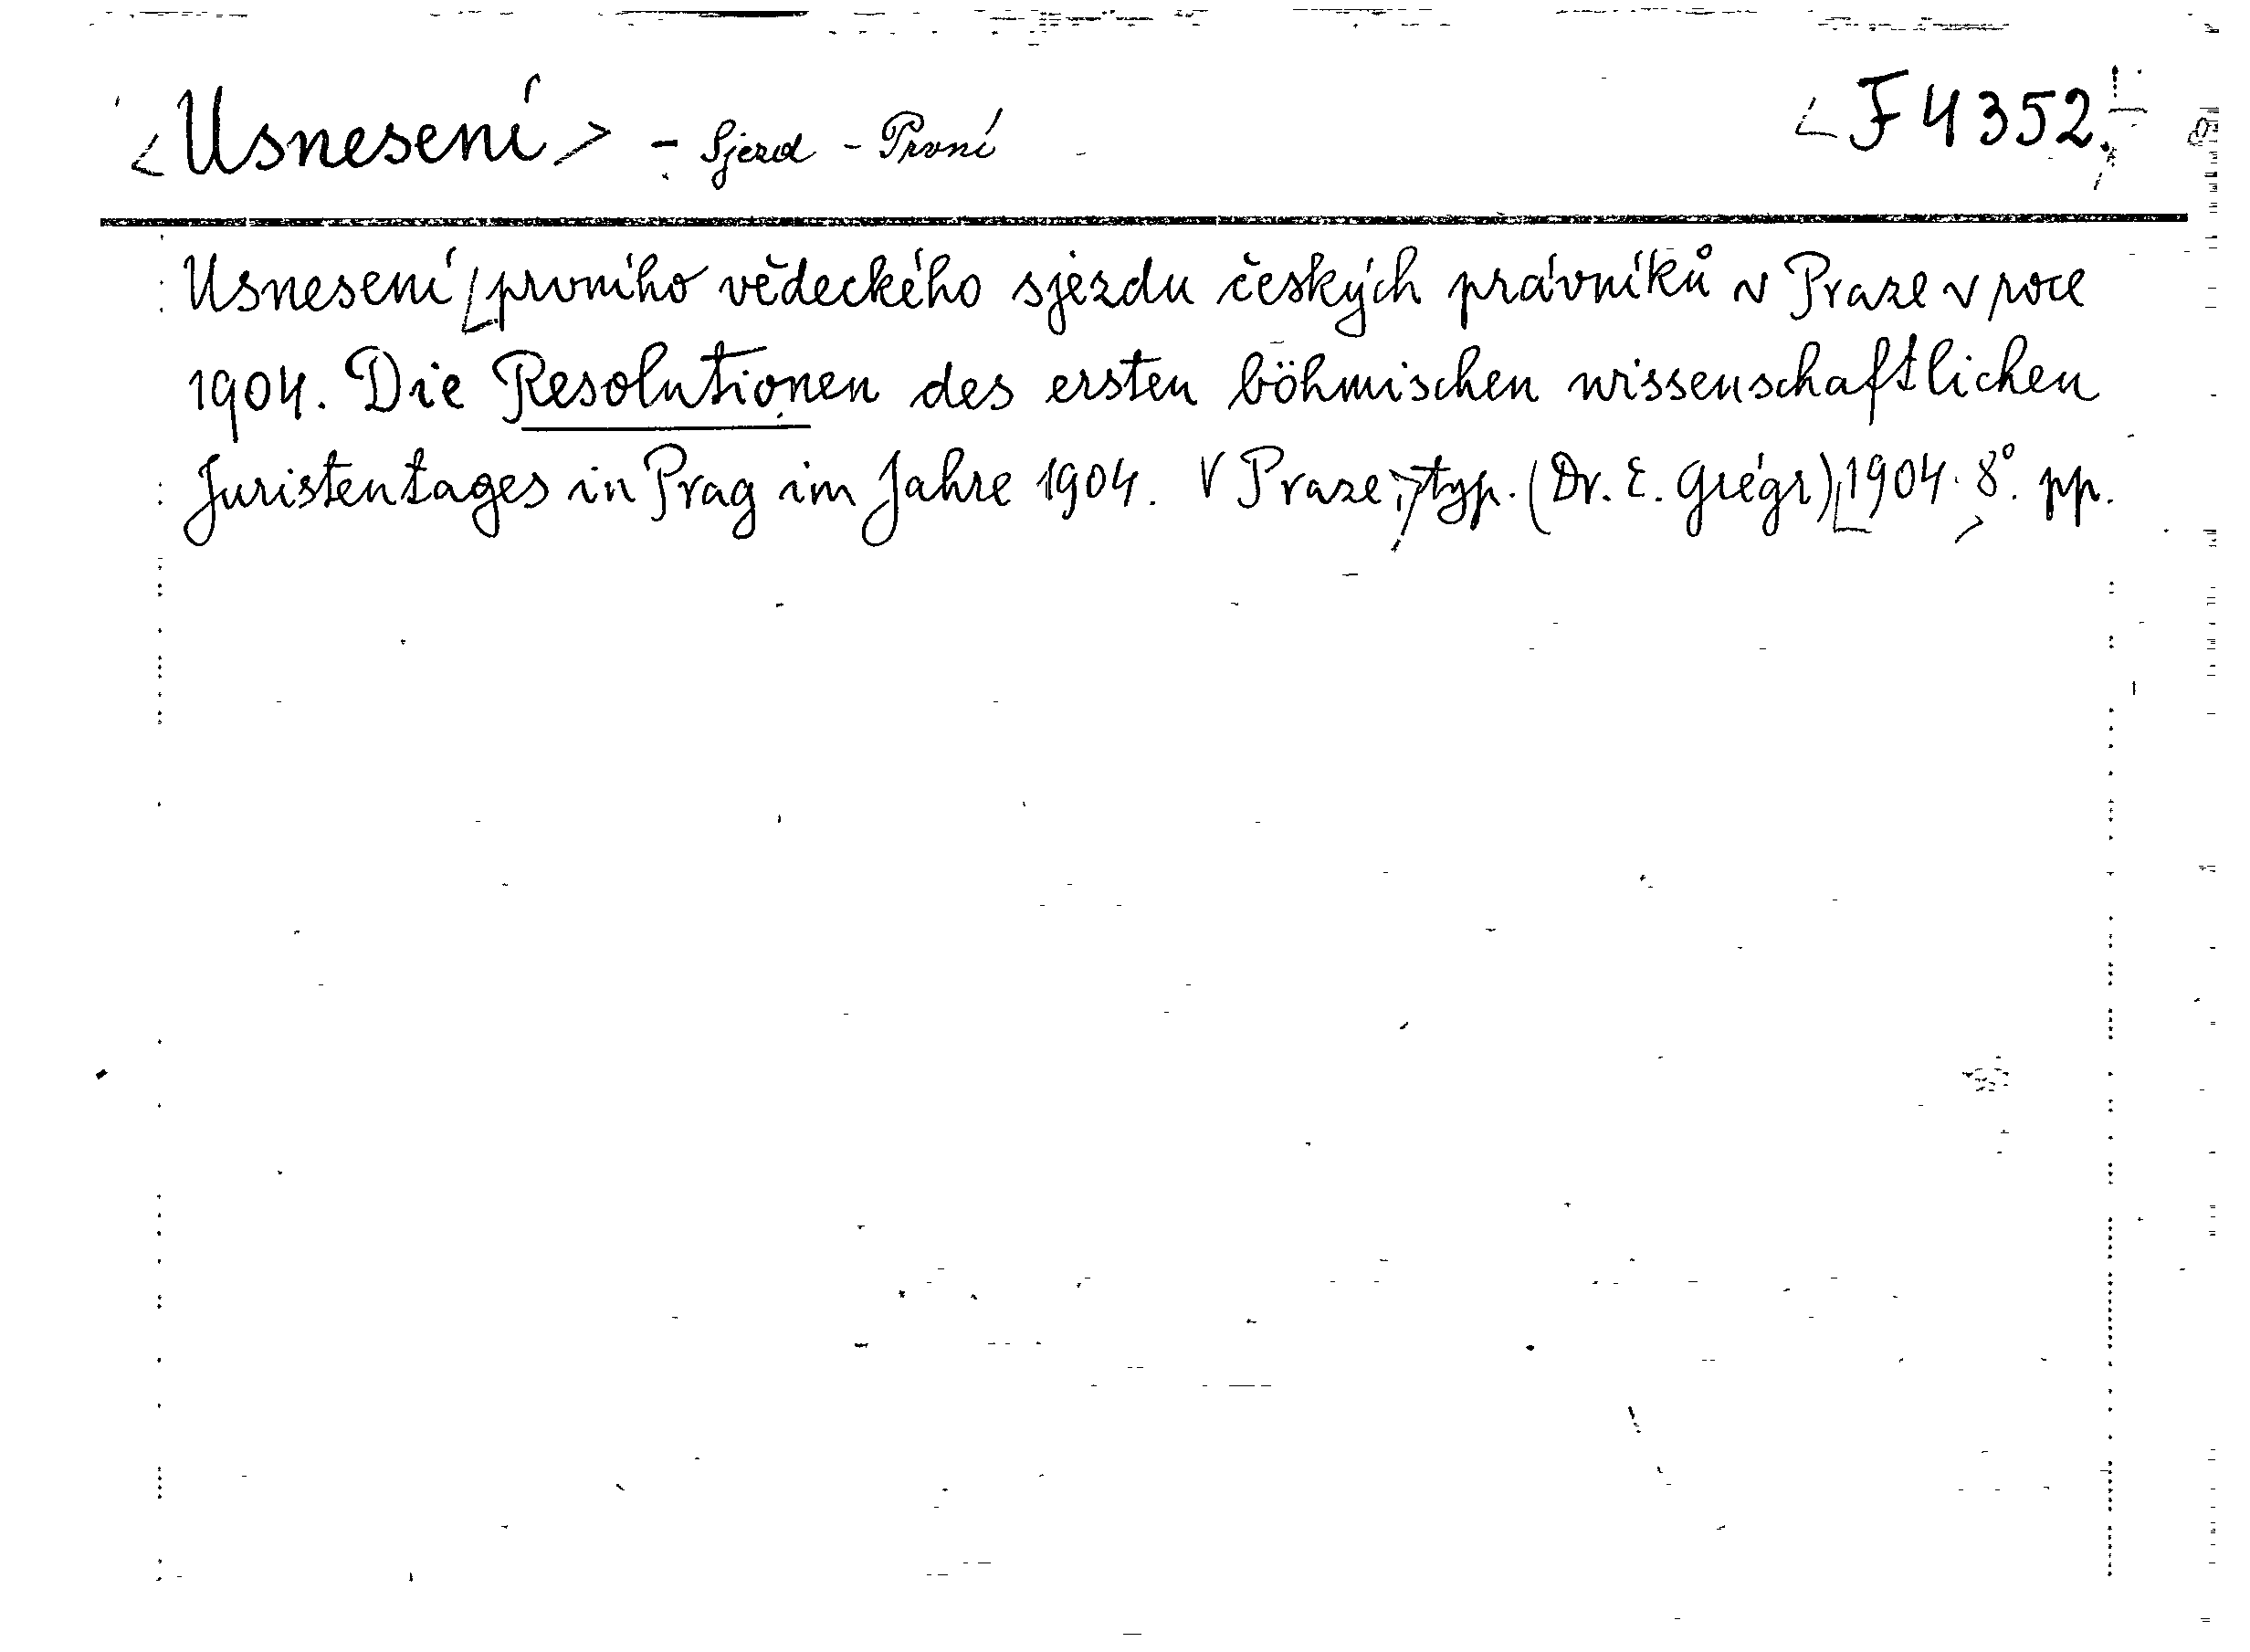 <Usnesení> - Sjezd - První <F 4352.
Usnesení prvního vědeckého sjezdu českých právníků v Praze v roce
1904. Die Resolutionen des ersten böhmischen wissenschaftlichen
Juristentages in Prag im Jahre 1904. V Praze, typ. (Dr. E. Grégr) 1904. 8°. pp.